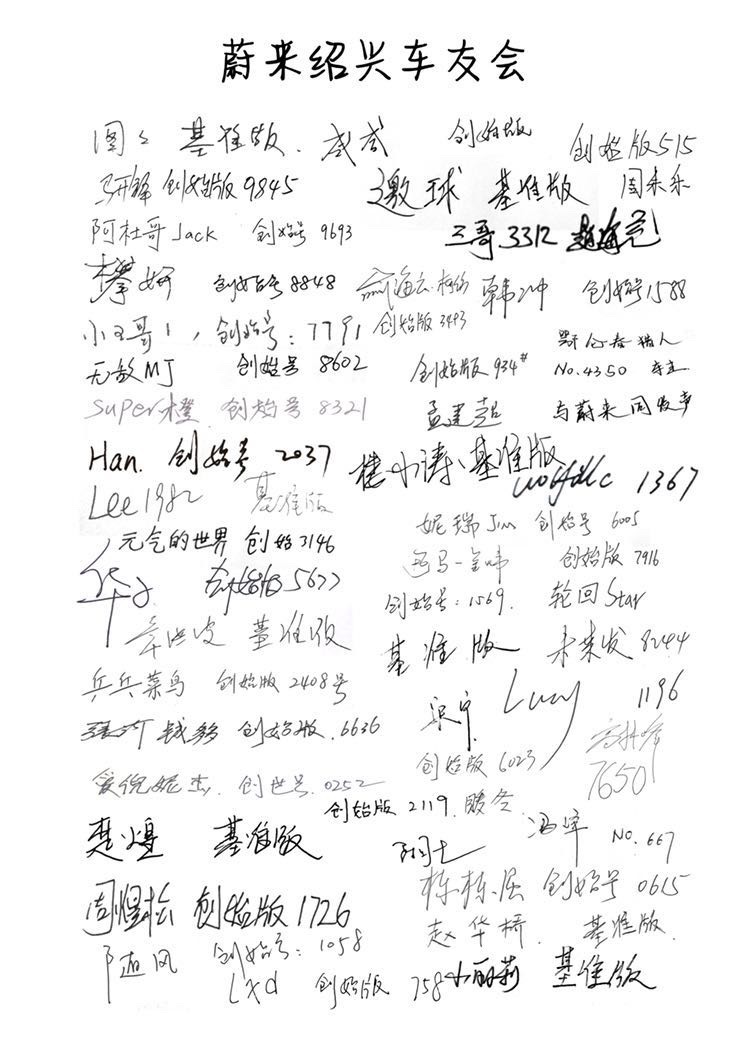 蔚来绍兴车友会
基准版 创始版 创始版515
创始版9845 邀球 基准版
阿杜哥Jack 创始号 9693 三哥 3312
攀妍 创始号8848 韩冲 创始号1588
小王哥1, 创始号:7791 创始版 3493
无敌MJ 创始号 8602 创始版 934# No.4350 车主
Super橙 创始号 8321 孟建超 与蔚来同发声
Han. 创始号 2037 楼小涛、基准版
Lee1982 基准版 wolfdlc 1367
元气的世界 创始3146 妮瑞Jim 创始号 6005
创始版5677 创始版 7916
创始号:1569. 轮回Star
基准版 基准版 未来发 8244
乒乓菜鸟 创始版2408号 Lucy 1196
钱多 创始版.6636
创始版 6023 7650
爱倪妮杰. 创世号.0252
创始版 2119. 暖冬
楚煌 基准版 冯峰 No.667
周煜松 创始版1726 栋栋屋 创始号 0615
随风 创始号:1058 赵华桥. 基准版.
Lxd 创始版 758 小丽莉 基准版